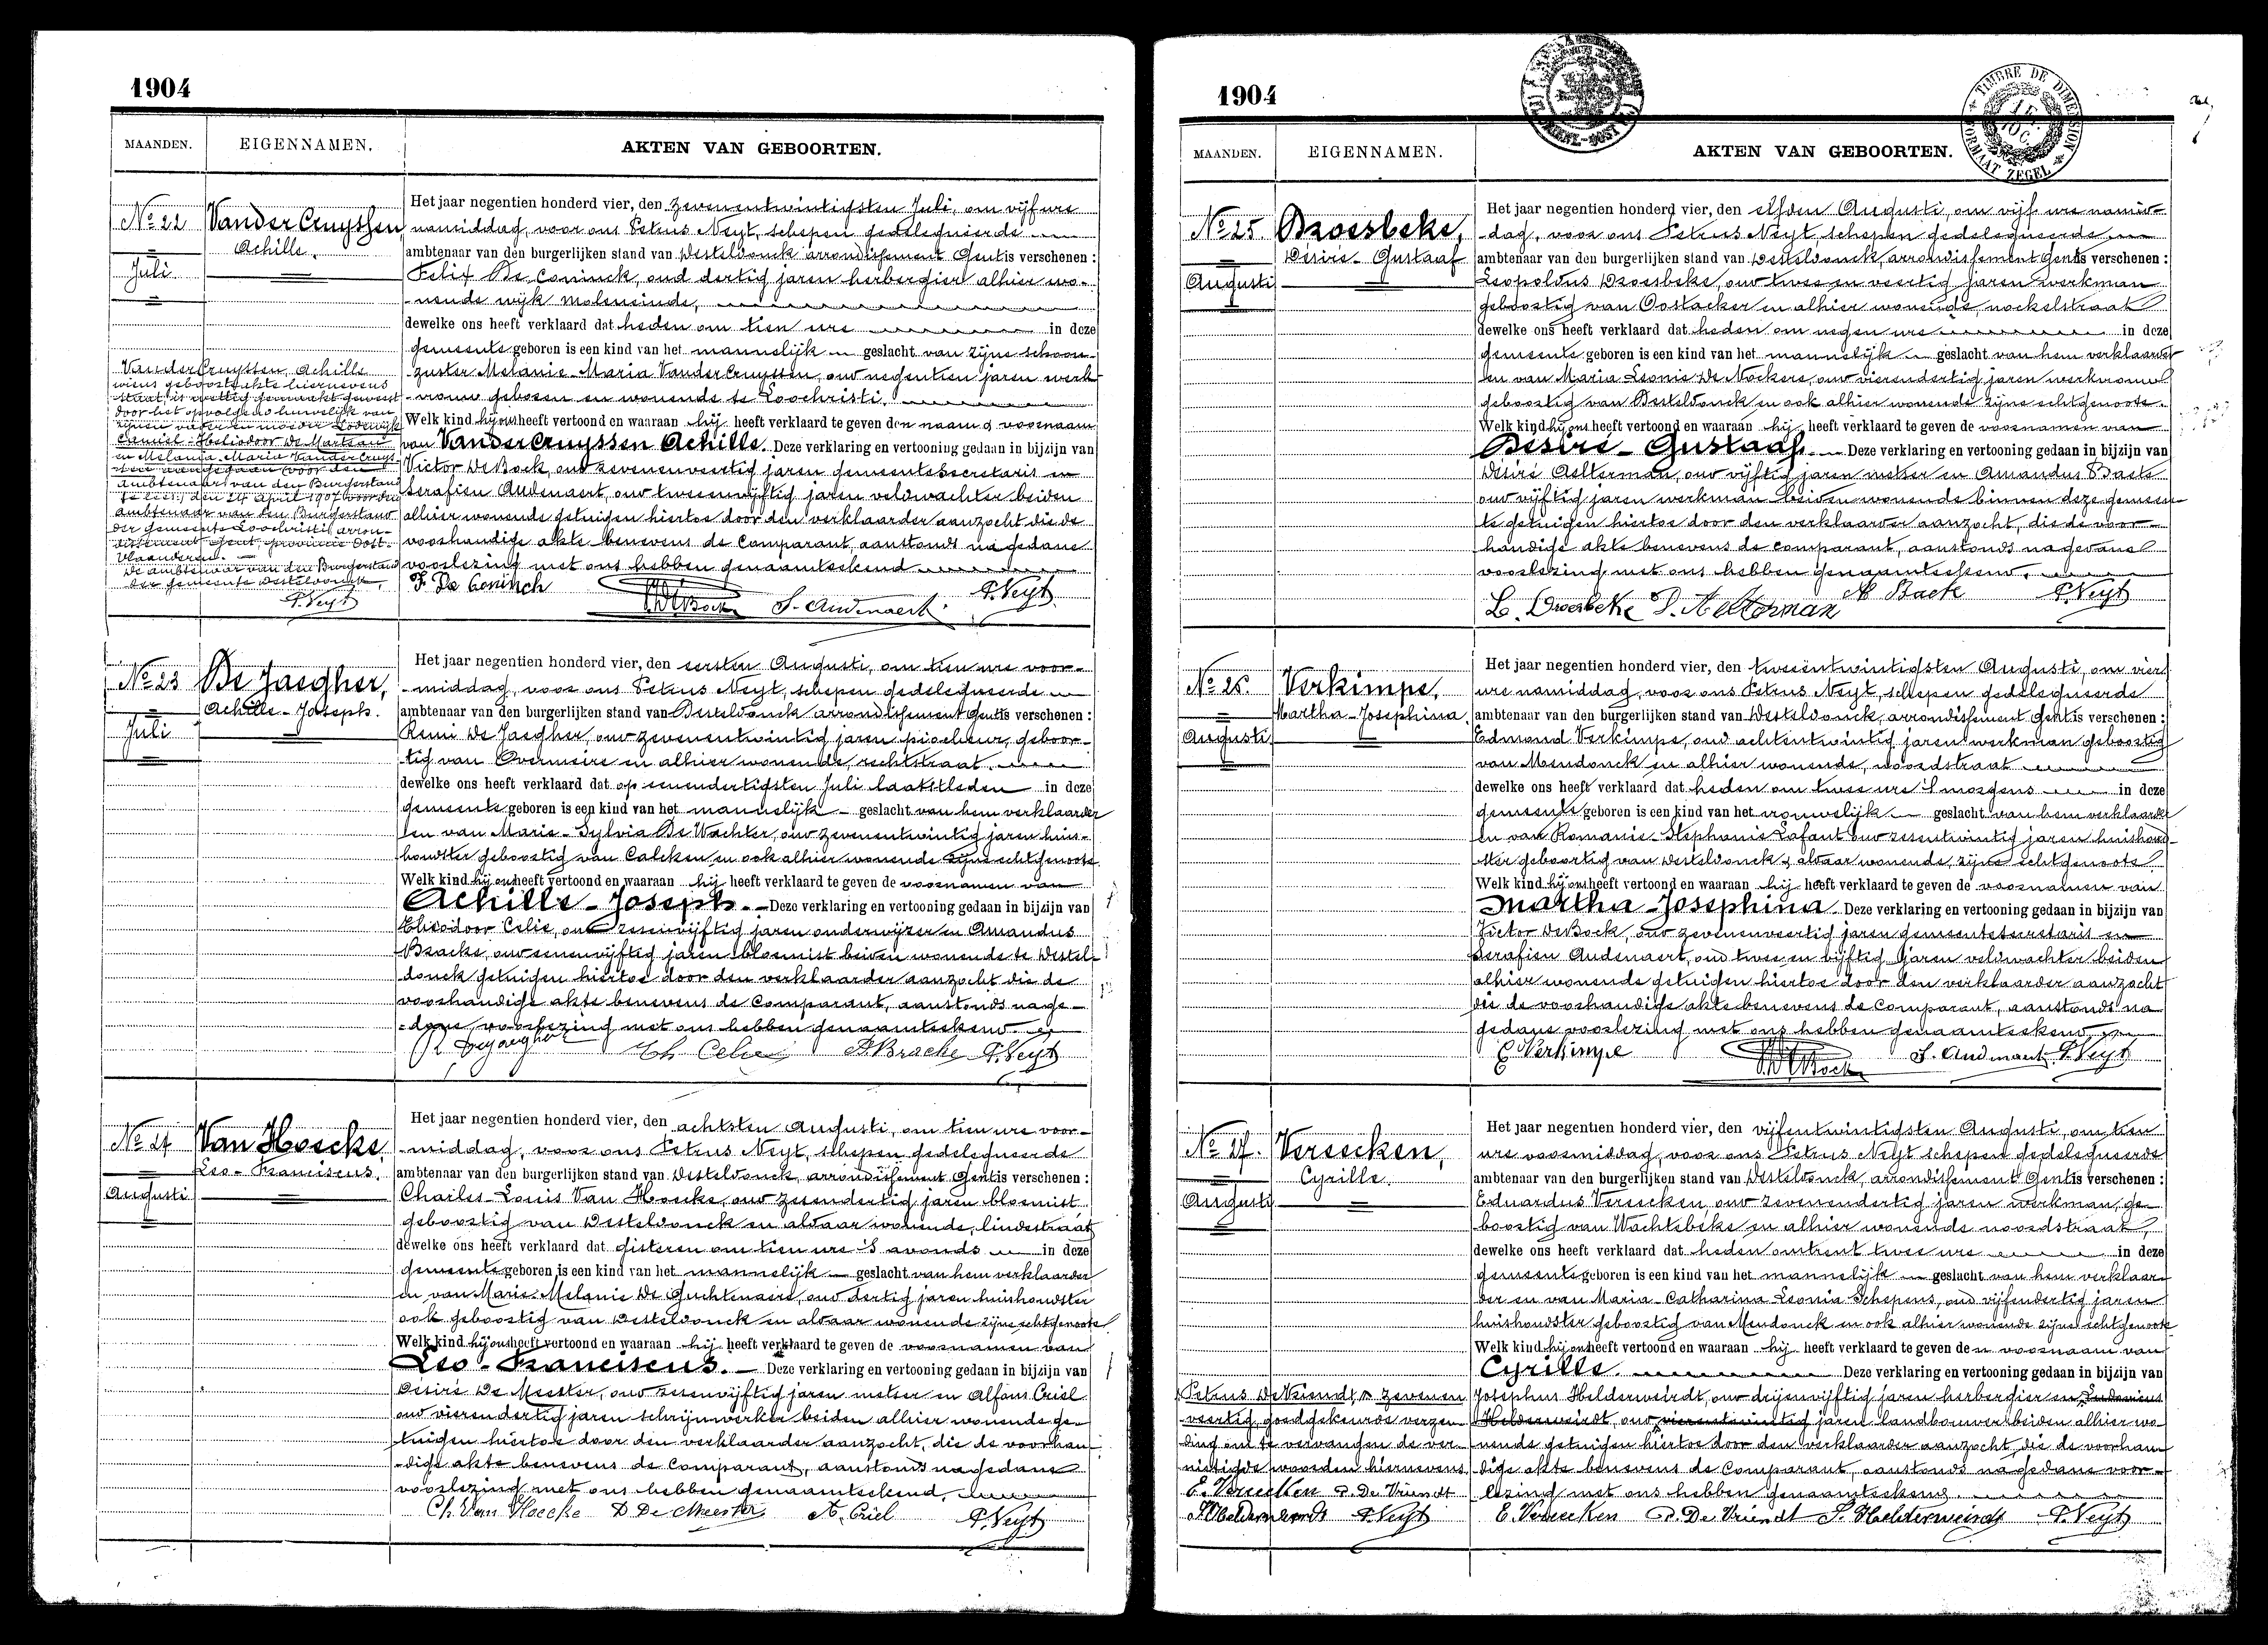 1904
MAANDEN. EIGENNAMEN. AKTEN VAN GEBOORTEN.
No 22
Juli
VanderCruyssen,
Achille.
VanderCruyssen, Achille
wiens geboorteakte hiernevens
staat, is wettig gemaakt geweest
door het opvolgend huwelijk van
zijnen vader en moeder Lodewijk
Camiel-Heliodoor De Marteau
en Melania-Maria VanderCruys-
sen aangegaan voor den
ambtenaar van den Burgerstand
den 24 April 1907 voor den
ambtenaar van den Burgerstand
der gemeente Loochristi, arron-
dissement Gent, provincie Oost-
Vlaanderen.
De ambtenaar van den Burgerstand
der gemeente Desteldonck,
P. Neyt
Het jaar negentien honderd vier, den zevenentwintigsten Juli, om vijf ure
namiddag, voor ons Petrus Neyt, schepen gedelegueerde
ambtenaar van den burgerlijken stand van Desteldonck arrondissement Gent is verschenen :
Felix De Coninck, oud dertig jaren herbergier alhier wo-
nende wijk Moleneinde,
dewelke ons heeft verklaard dat heden om tien ure in deze
gemeente geboren is een kind van het mannelijk geslacht van zijne schoon-
zuster Melanie-Maria VanderCruyssen, oud negentien jaren werk-
vrouw geboren en wonende te Loochristi.
Welk kind hij ons heeft vertoond en waaraan hij heeft verklaard te geven den naam & voornaam
van VanderCruyssen Achille. Deze verklaring en vertooning gedaan in bijzijn van
Victor DeBock, oud zevenenveertig jaren gemeentesecretaris en
Serafien Audenaert, oud tweeenvijftig jaren veldwachter beiden
alhier wonende getuigen hiertoe door den verklaarder aanzocht die de
voorhandige akte benevens de Comparant, aanstonds na gedane
voorlezing met ons hebben genaamteekend
F. De Coninck VDeBock S. Audenaert P. Neyt
No 23
Juli
De Jaegher,
Achille-Joseph.
Het jaar negentien honderd vier, den eersten Augusti, om tien ure voor-
middag, voor ons Petrus Neyt, schepen gedelegueerde
ambtenaar van den burgerlijken stand van Desteldonck arrondissement Gent is verschenen :
Remi De Jaegher, oud zevenentwintig jaren piocheur, geboor-
tig van Overmeire en alhier wonende, rechtstraat.
dewelke ons heeft verklaard dat op eenendertigsten Juli laatstleden in deze
gemeente geboren is een kind van het mannelijk geslacht van hem verklaarder
en van Marie-Sylvia De Wachter, oud zevenentwintig jaren huis-
houdster geboortig van Calcken en ook alhier wonende zijne echtgenoote.
Welk kind hij ons heeft vertoond en waaraan hij heeft verklaard te geven de voornamen van
Achille-Joseph. Deze verklaring en vertooning gedaan in bijzijn van
Eliodoor Celie, oud zesenvijftig jaren onderwijzer en Amandus
Bracke, oud eenenvijftig jaren bloemist beiden wonende te Destel-
donck getuigen hiertoe door den verklaarder aanzocht die de
voorhandige akte benevens de Comparant, aanstonds nage-
dane voorlezing met ons hebben genaamteekend.
R Dejaegher Celie A. Bracke P. Neyt
No 24
Augusti
Van Hoecke,
Leo-Franciscus.
Het jaar negentien honderd vier, den achtsten Augusti, om tien ure voor-
middag, voor ons Petrus Neyt, schepen gedelegueerde
ambtenaar van den burgerlijken stand van Desteldonck, arrondissement Gent is verschenen :
Charles-Louis Van Hoecke, oud zesendertig jaren bloemist
geboortig van Desteldonck en aldaar wonende, lindestraat
dewelke ons heeft verklaard dat gisteren om tien ure 's avonds in deze
gemeente geboren is een kind van het mannelijk geslacht van hem verklaarder
en van Marie-Melanie De Guchtenaere, oud dertig jaren huishoudster
ook geboortig van Desteldonck en aldaar wonende zijne echtgenoote
Welk kind hij ons heeft vertoond en waaraan hij heeft verklaard te geven de voornamen van
Leo-Franciscus. Deze verklaring en vertooning gedaan in bijzijn van
Désiré De Meester, oud zesenvijftig jaren metser en Alfons Criel
oud vierendertig jaren schrijnwerker beiden alhier wonende ge-
tuigen hiertoe door den verklaarder aanzocht, die de voorhan-
dige akte benevens de Comparant, aanstonds nagedane
voorlezing met ons hebben genaamteekend.
Ch. Van Hoecke D De Meester A. Criel P. Neyt
1904
TIMBRE DE DIMENSION
FORMAAT ZEGEL
MAANDEN. EIGENNAMEN. AKTEN VAN GEBOORTEN.
No 25
Augusti
Droesbeke,
Désiré-Gustaaf
Het jaar negentien honderd vier, den elfden Augusti, om vijf ure namid-
dag, voor ons Petrus Neyt, schepen gedelegueerde
ambtenaar van den burgerlijken stand van Desteldonck, arrondissement Gent is verschenen :
Leopoldus Droesbeke, oud twee en veertig jaren werkman
geboortig van Oostacker en alhier wonende, nockelstraat
dewelke ons heeft verklaard dat heden om negen ure in deze
gemeente geboren is een kind van het mannelijk geslacht van hem verklaarder
en van Maria Leonie De Nockere, oud vierendertig jaren werkvrouw
geboortig van Desteldonck en ook alhier wonende zijne echtgenoote.
Welk kind hij ons heeft vertoond en waaraan hij heeft verklaard te geven de voornamen van
Desiré-Gustaaf. Deze verklaring en vertooning gedaan in bijzijn van
Désiré Aelterman, oud vijftig jaren metser en Amandus Baete
oud vijftig jaren werkman beiden wonende binnen deze gemeen-
te getuigen hiertoe door den verklaarder aanzocht, die de voor-
handige akte benevens de comparant, aanstonds nagedane
voorlezing met ons hebben genaamteekend.
L. Droesbeke D. Aelterman A. Baete P. Neyt
No 26.
Augusti
Verkimpe,
Martha-Josephina.
Het jaar negentien honderd vier, den tweeentwintigsten Augusti, om vier
ure namiddag, voor ons Petrus Neyt, schepen gedelegueerde
ambtenaar van den burgerlijken stand van Desteldonck, arrondissement Gent is verschenen :
Edmond Verkimpe, oud achtentwintig jaren werkman geboortig
van Mendonck en alhier wonende, noordstraat
dewelke ons heeft verklaard dat heden om twee ure 's morgens in deze
gemeente geboren is een kind van het vrouwelijk geslacht van hem verklaarder
en van Romanie-Stephanie Lafaut oud zesentwintig jaren huishoud-
ster geboortig van Desteldonck & aldaar wonende, zijne echtgenoote
Welk kind hij ons heeft vertoond en waaraan hij heeft verklaard te geven de voornamen van
Martha-Josephina. Deze verklaring en vertooning gedaan in bijzijn van
Victor DeBock, oud zevenenveertig jaren gemeentesecretaris en
Serafien Audenaert, oud twee en vijftig jaren veldwachter beiden
alhier wonende getuigen hiertoe door den verklaarder aanzocht
die de voorhandige akte benevens de Comparant, aanstonds na
gedane voorlezing met ons hebben genaamteekend,
E Verkimpe VDeBock S. Audenaert P. Neyt
No 27.
Augusti
Vereecken,
Cyrille.
Het jaar negentien honderd vier, den vijfentwintigsten Augusti, om tien
ure voormiddag, voor ons Petrus Neyt schepen gedelegueerde
ambtenaar van den burgerlijken stand van Desteldonck, arrondissement Gent is verschenen :
Eduardus Vereecken, oud zevenendertig jaren werkman, ge-
boortig van Wachtebeke en alhier wonende noordstraat,
dewelke ons heeft verklaard dat heden omtrent twee ure in deze
gemeente geboren is een kind van het mannelijk geslacht van hem verklaar-
der en van Maria-Catharina Leonia Schepens, oud vijfendertig jaren
huishoudster geboortig van Mendonck en ook alhier wonende zijne echtgenoote
Welk kind hij ons heeft vertoond en waaraan hij heeft verklaard te geven den voornaam van
Cyrille. Deze verklaring en vertooning gedaan in bijzijn van
Josephus Helderweirdt, oud drijenvijftig jaren herbergier en Ludovicus
Helderweirdt, oud vierentwintig jaren landbouwer beiden alhier wo-
nende getuigen hiertoe door den verklaarder aanzocht, die de voorhan-
dige akte benevens de Comparant, aanstonds na gedane voor-
lezing met ons hebben genaamteekend.
E. Vereecken P. De Vriendt J. Helderweirdt P. Neyt
Petrus De Vriendt & zevenen
veertig, goedgekeurde verzen-
ding om te vervangen de ver-
nietigde woorden hiernevens.
E. Vereecken P. De Vriendt
J. Helderweirdt P. Neyt